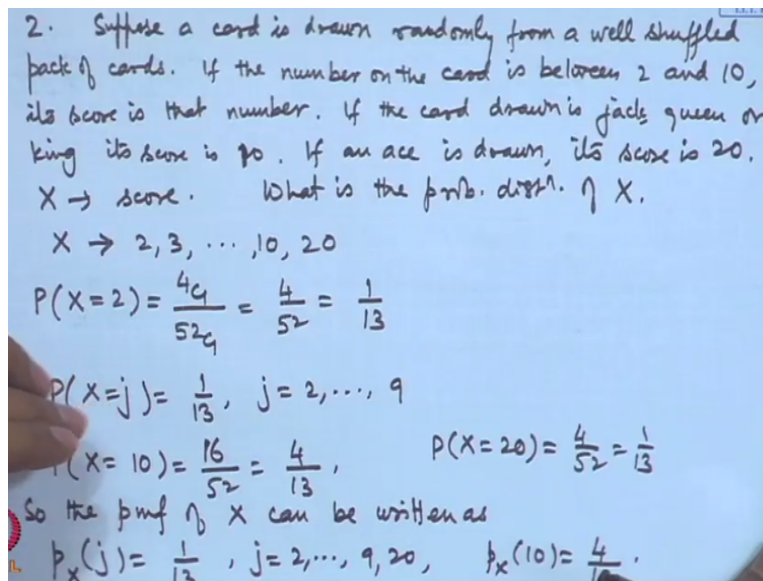 2. Suppose a card is drawn randomly from a well shuffled
pack of cards. If the number on the card is between 2 and 10,
its score is that number. If the card drawn is jack queen or
king its score is 10. If an ace is drawn, its score is 20.
X → score. What is the prob. distⁿ. of X.
X → 2, 3, ..., 10, 20
P(X=2) = ⁴C₁ / ⁵²C₁ = 4/52 = 1/13
P(X=j) = 1/13, j = 2, ..., 9
(X=10) = 16/52 = 4/13, P(X=20) = 4/52 = 1/13
So the pmf of X can be written as
p_X(j) = 1/13, j = 2, ..., 9, 20, p_X(10) = 4/